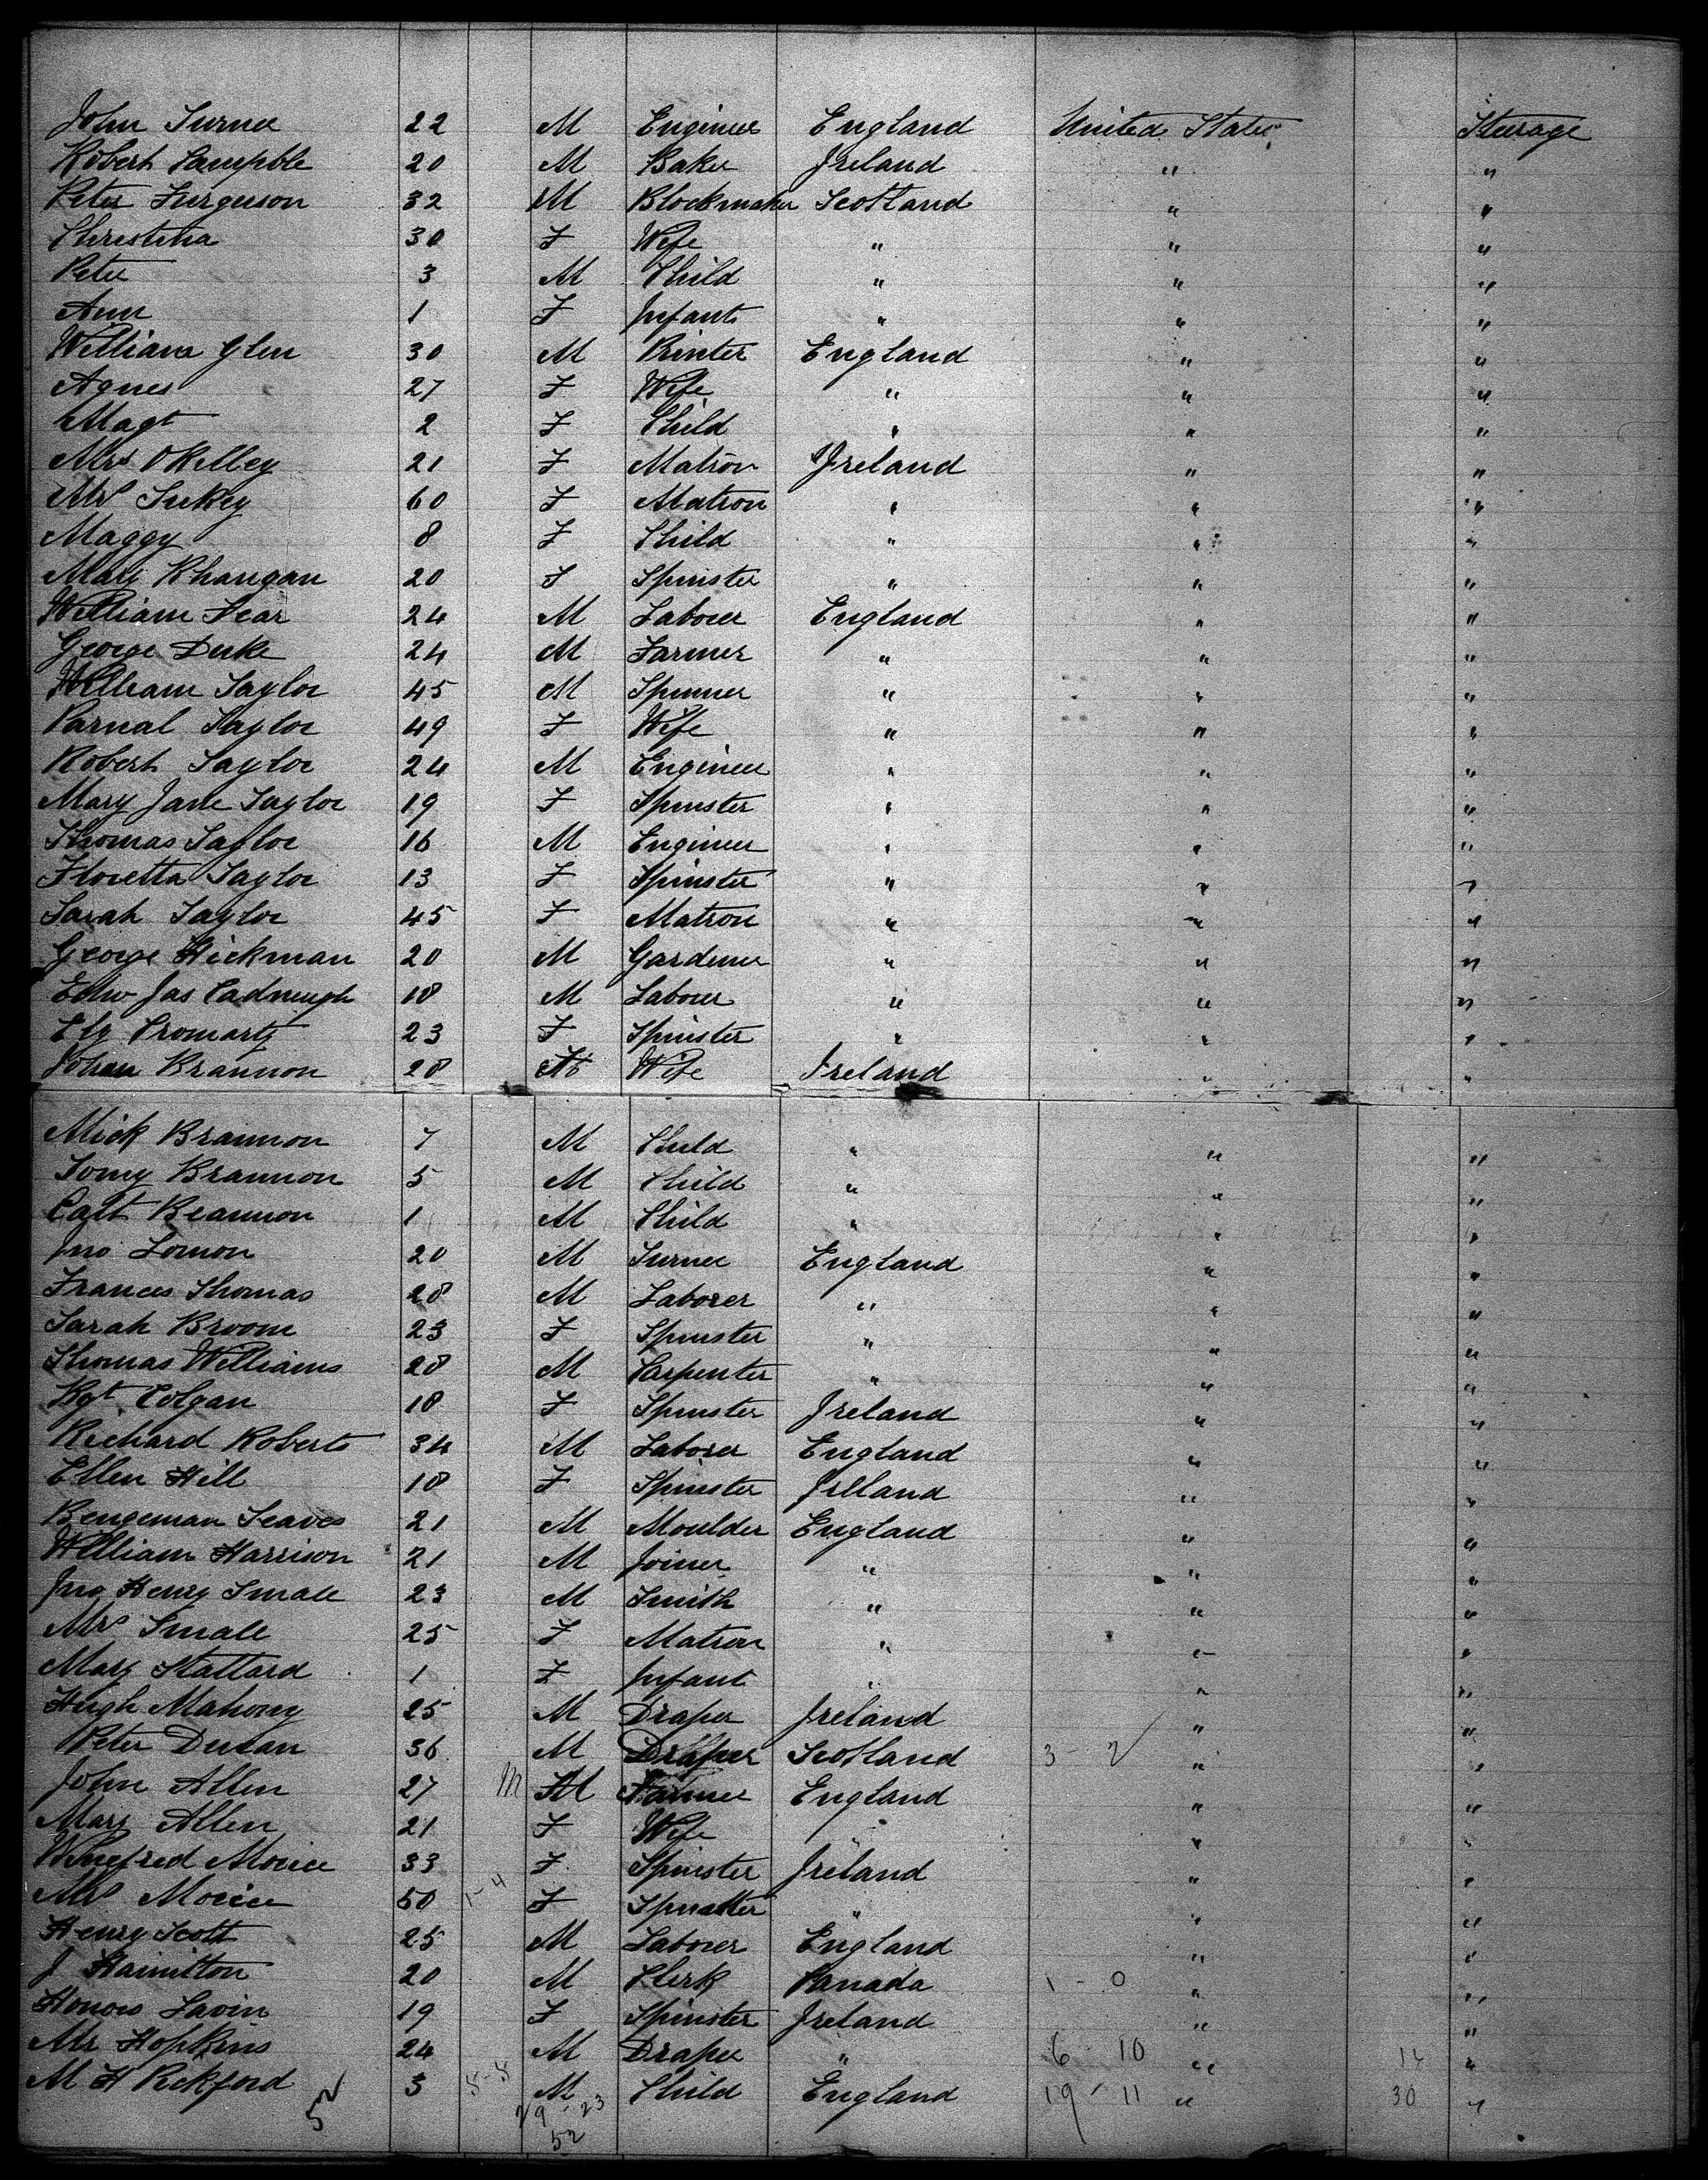 John Turner 22 M Engineer England United States Steerage
Robert Campble 20 M Baker Ireland " "
Peter Ferguson 32 M Blockmaker Scotland " "
Christina 30 F Wife " " "
Peter 3 M Child " " "
Ann 1 F Infant " " "
William Glen 30 M Printer England " "
Agnes 27 F Wife " " "
Magt 2 F Child " " "
Mrs OKelley 21 F Matron Ireland " "
Mrs 60 F Matron " " "
Maggy 8 F Child " " "
Mary 20 F Spinster " " "
William Fear 24 M Laborer England " "
George Duke 24 M Farmer " " "
William Taylor 45 M Spinner " " "
Parnal Taylor 49 F Wife " " "
Robert Taylor 24 M Engineer " " "
Mary Jane Taylor 19 F Spinster " " "
Thomas Taylor 16 M Engineer " " "
Floretta Taylor 13 F Spinster " " "
Sarah Taylor 45 F Matron " " "
George Hickman 20 M Gardener " " "
Edw Jas 18 M Laborer " " "
Elz Cromarty 23 F Spinster " " "
Johan Brannon 28 Wife Ireland " "
Mick Brannon 7 M Child " " "
Tomy Brannon 5 M Child " " "
Brannon 1 M Child " " "
Jno Lomon 20 M Turner England " "
Frances Thomas 28 M Laborer " " "
Sarah Broom 23 F Spinster " " "
Thomas Williams 28 M Carpenter " " "
Bgt Colgan 18 F Spinster Ireland " "
Richard Roberts 34 M Laborer England " "
Ellen Hill 18 F Spinster Ireland " "
Bengeman 21 M Moulder England " "
William Harrison 21 M Joiner " " "
Jno Henry Smale 23 M Smith " " "
Mrs Smale 25 F Matron " " "
Mary Stattard 1 F Infant " " "
Hugh Mahony 25 M Draper Ireland " "
Peter Ducan 36 M Draper Scotland 3 - 2 " "
John Allen 27 m M Farmer England " "
Mary Allen 21 F Wife " " "
Winefred 33 F Spinster Ireland " "
Mrs 50 1-4 F Spinster " " "
Henry Scott 25 M Laborer England " "
J Hamilton 20 M Clerk Canada 1 - 0 " "
Honora Lavin 19 F Spinster Ireland " "
Mr Hopkins 24 M Draper " 6 - 10 " "
M H Pickford 3 M Child England 19 - 11 " 30 "
52 29 - 23
52